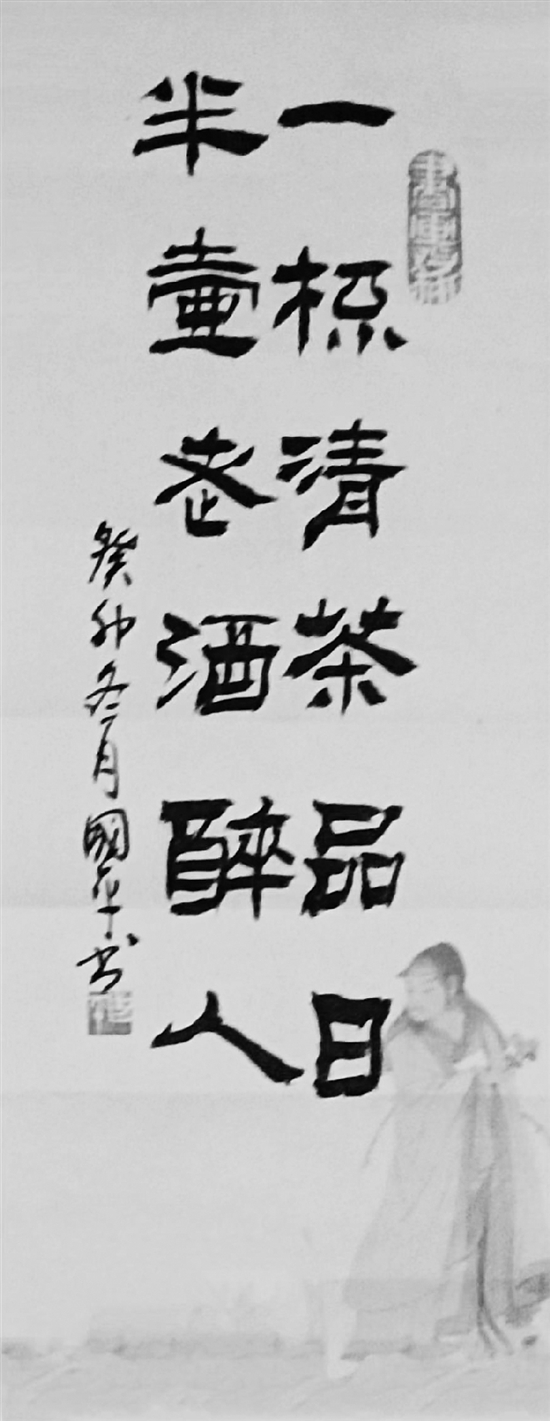 一杯清茶品日
半壺老酒醉人
癸卯冬月國平书